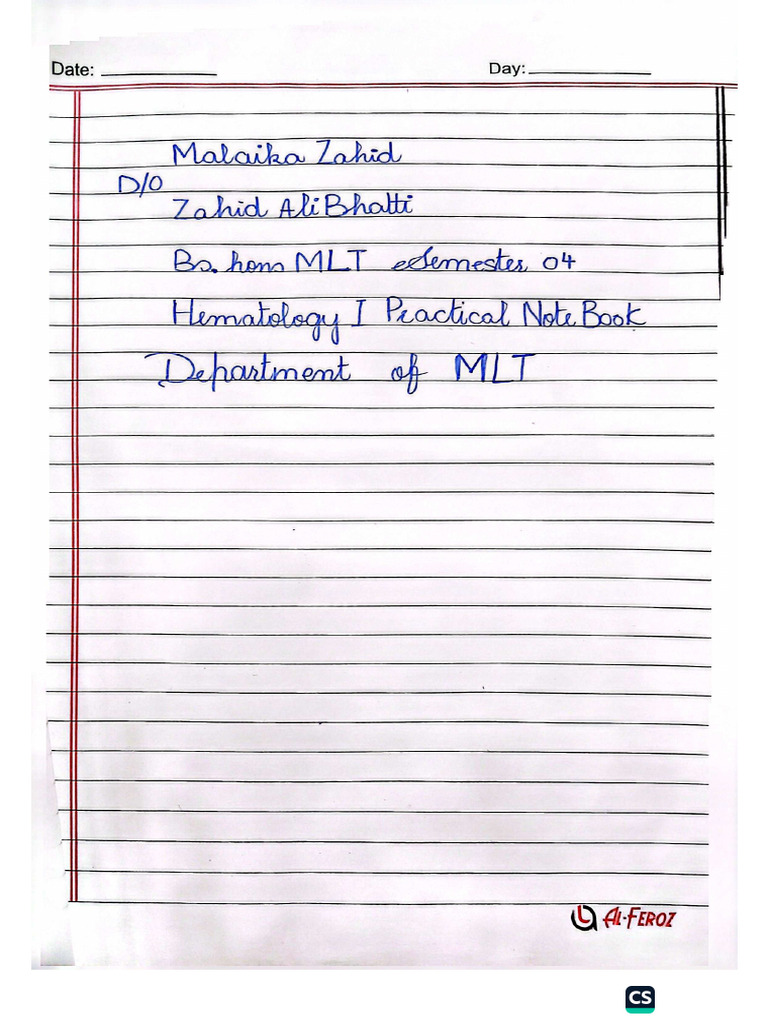 Date: ____________ Day: ____________
Malaika Zahid
D/O
Zahid Ali Bhatti
Bs. hons MLT Semester 04
Hematology I Practical Note Book
Department of MLT
AL-FEROZ
CS